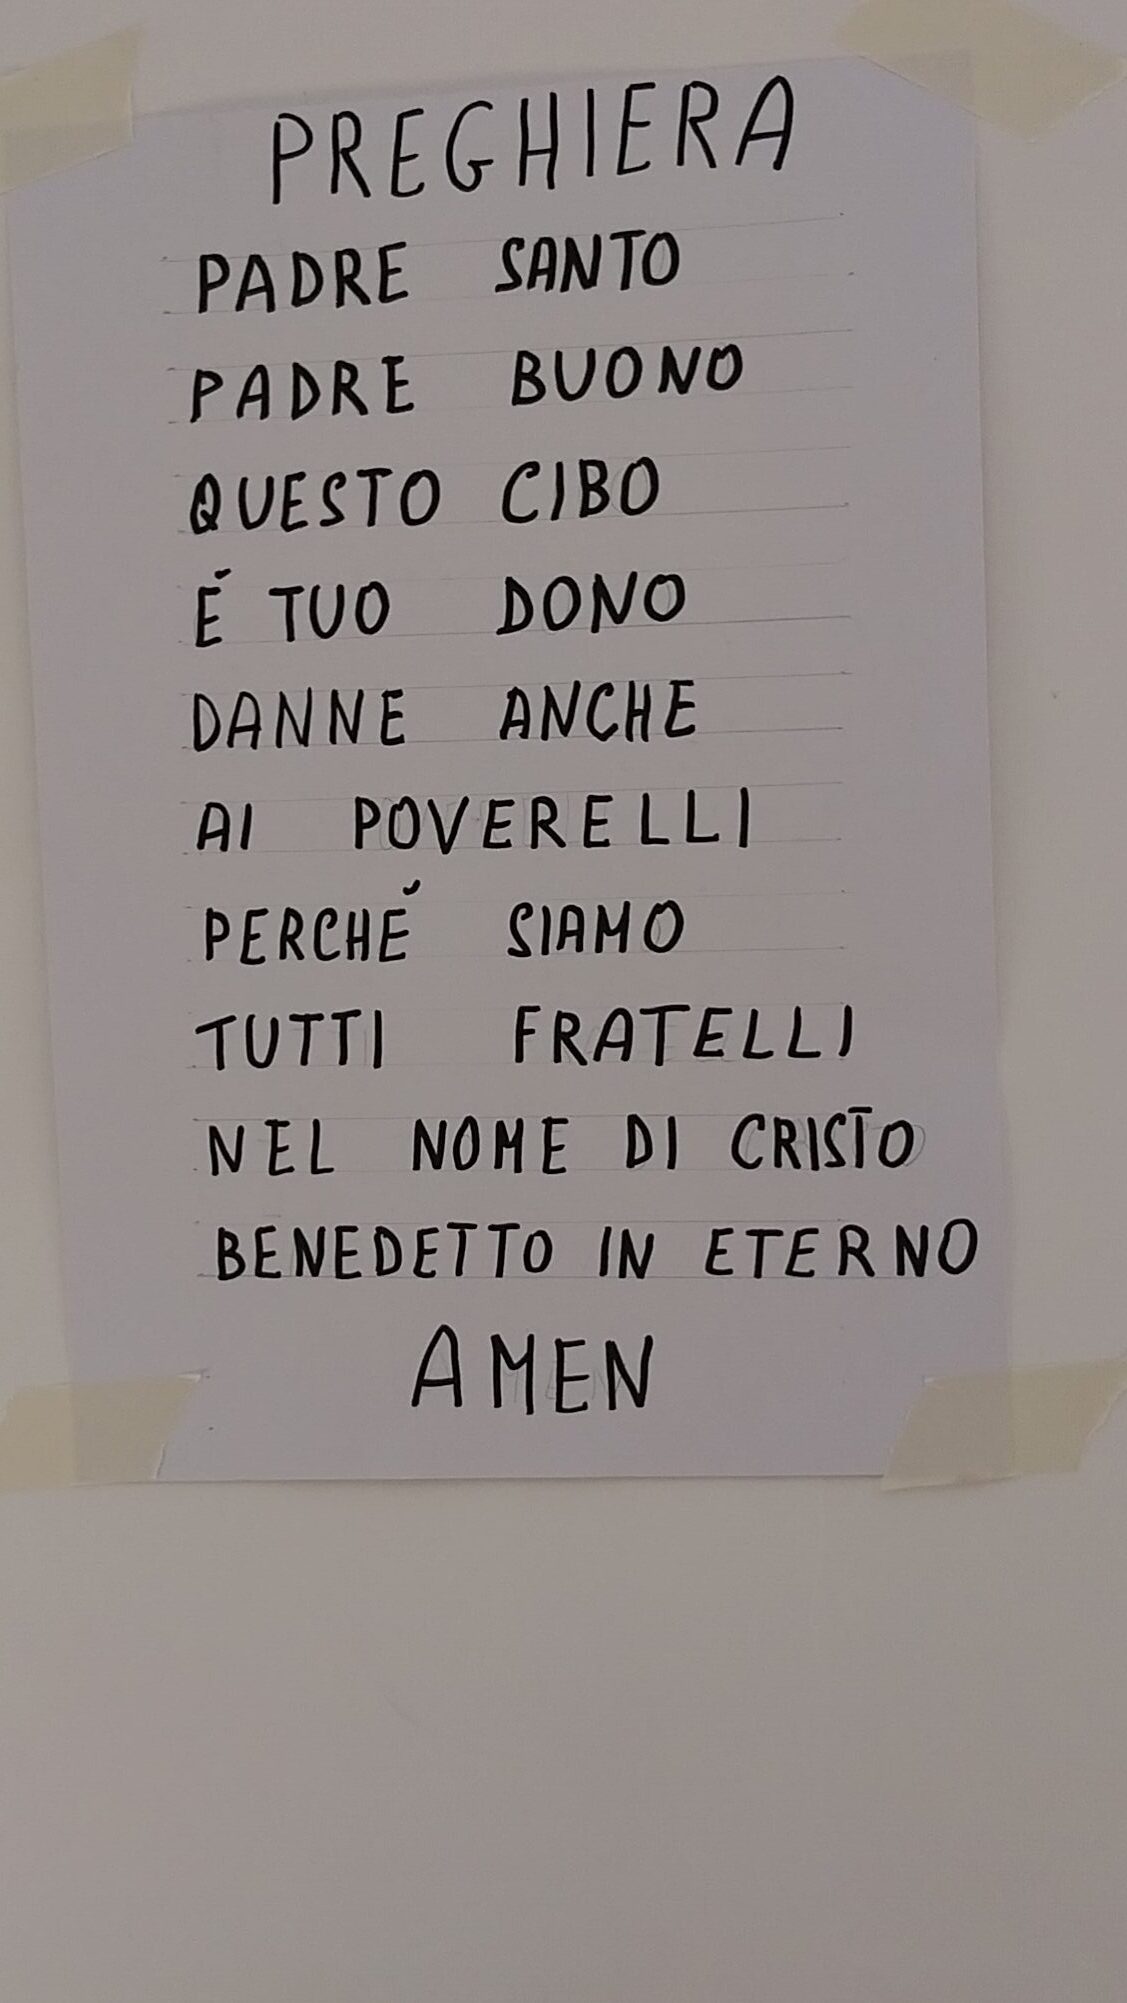 PREGHIERA
PADRE SANTO
PADRE BUONO
QUESTO CIBO
É TUO DONO
DANNE ANCHE
AI POVERELLI
PERCHÉ SIAMO
TUTTI FRATELLI
NEL NOME DI CRISTO
BENEDETTO IN ETERNO
AMEN